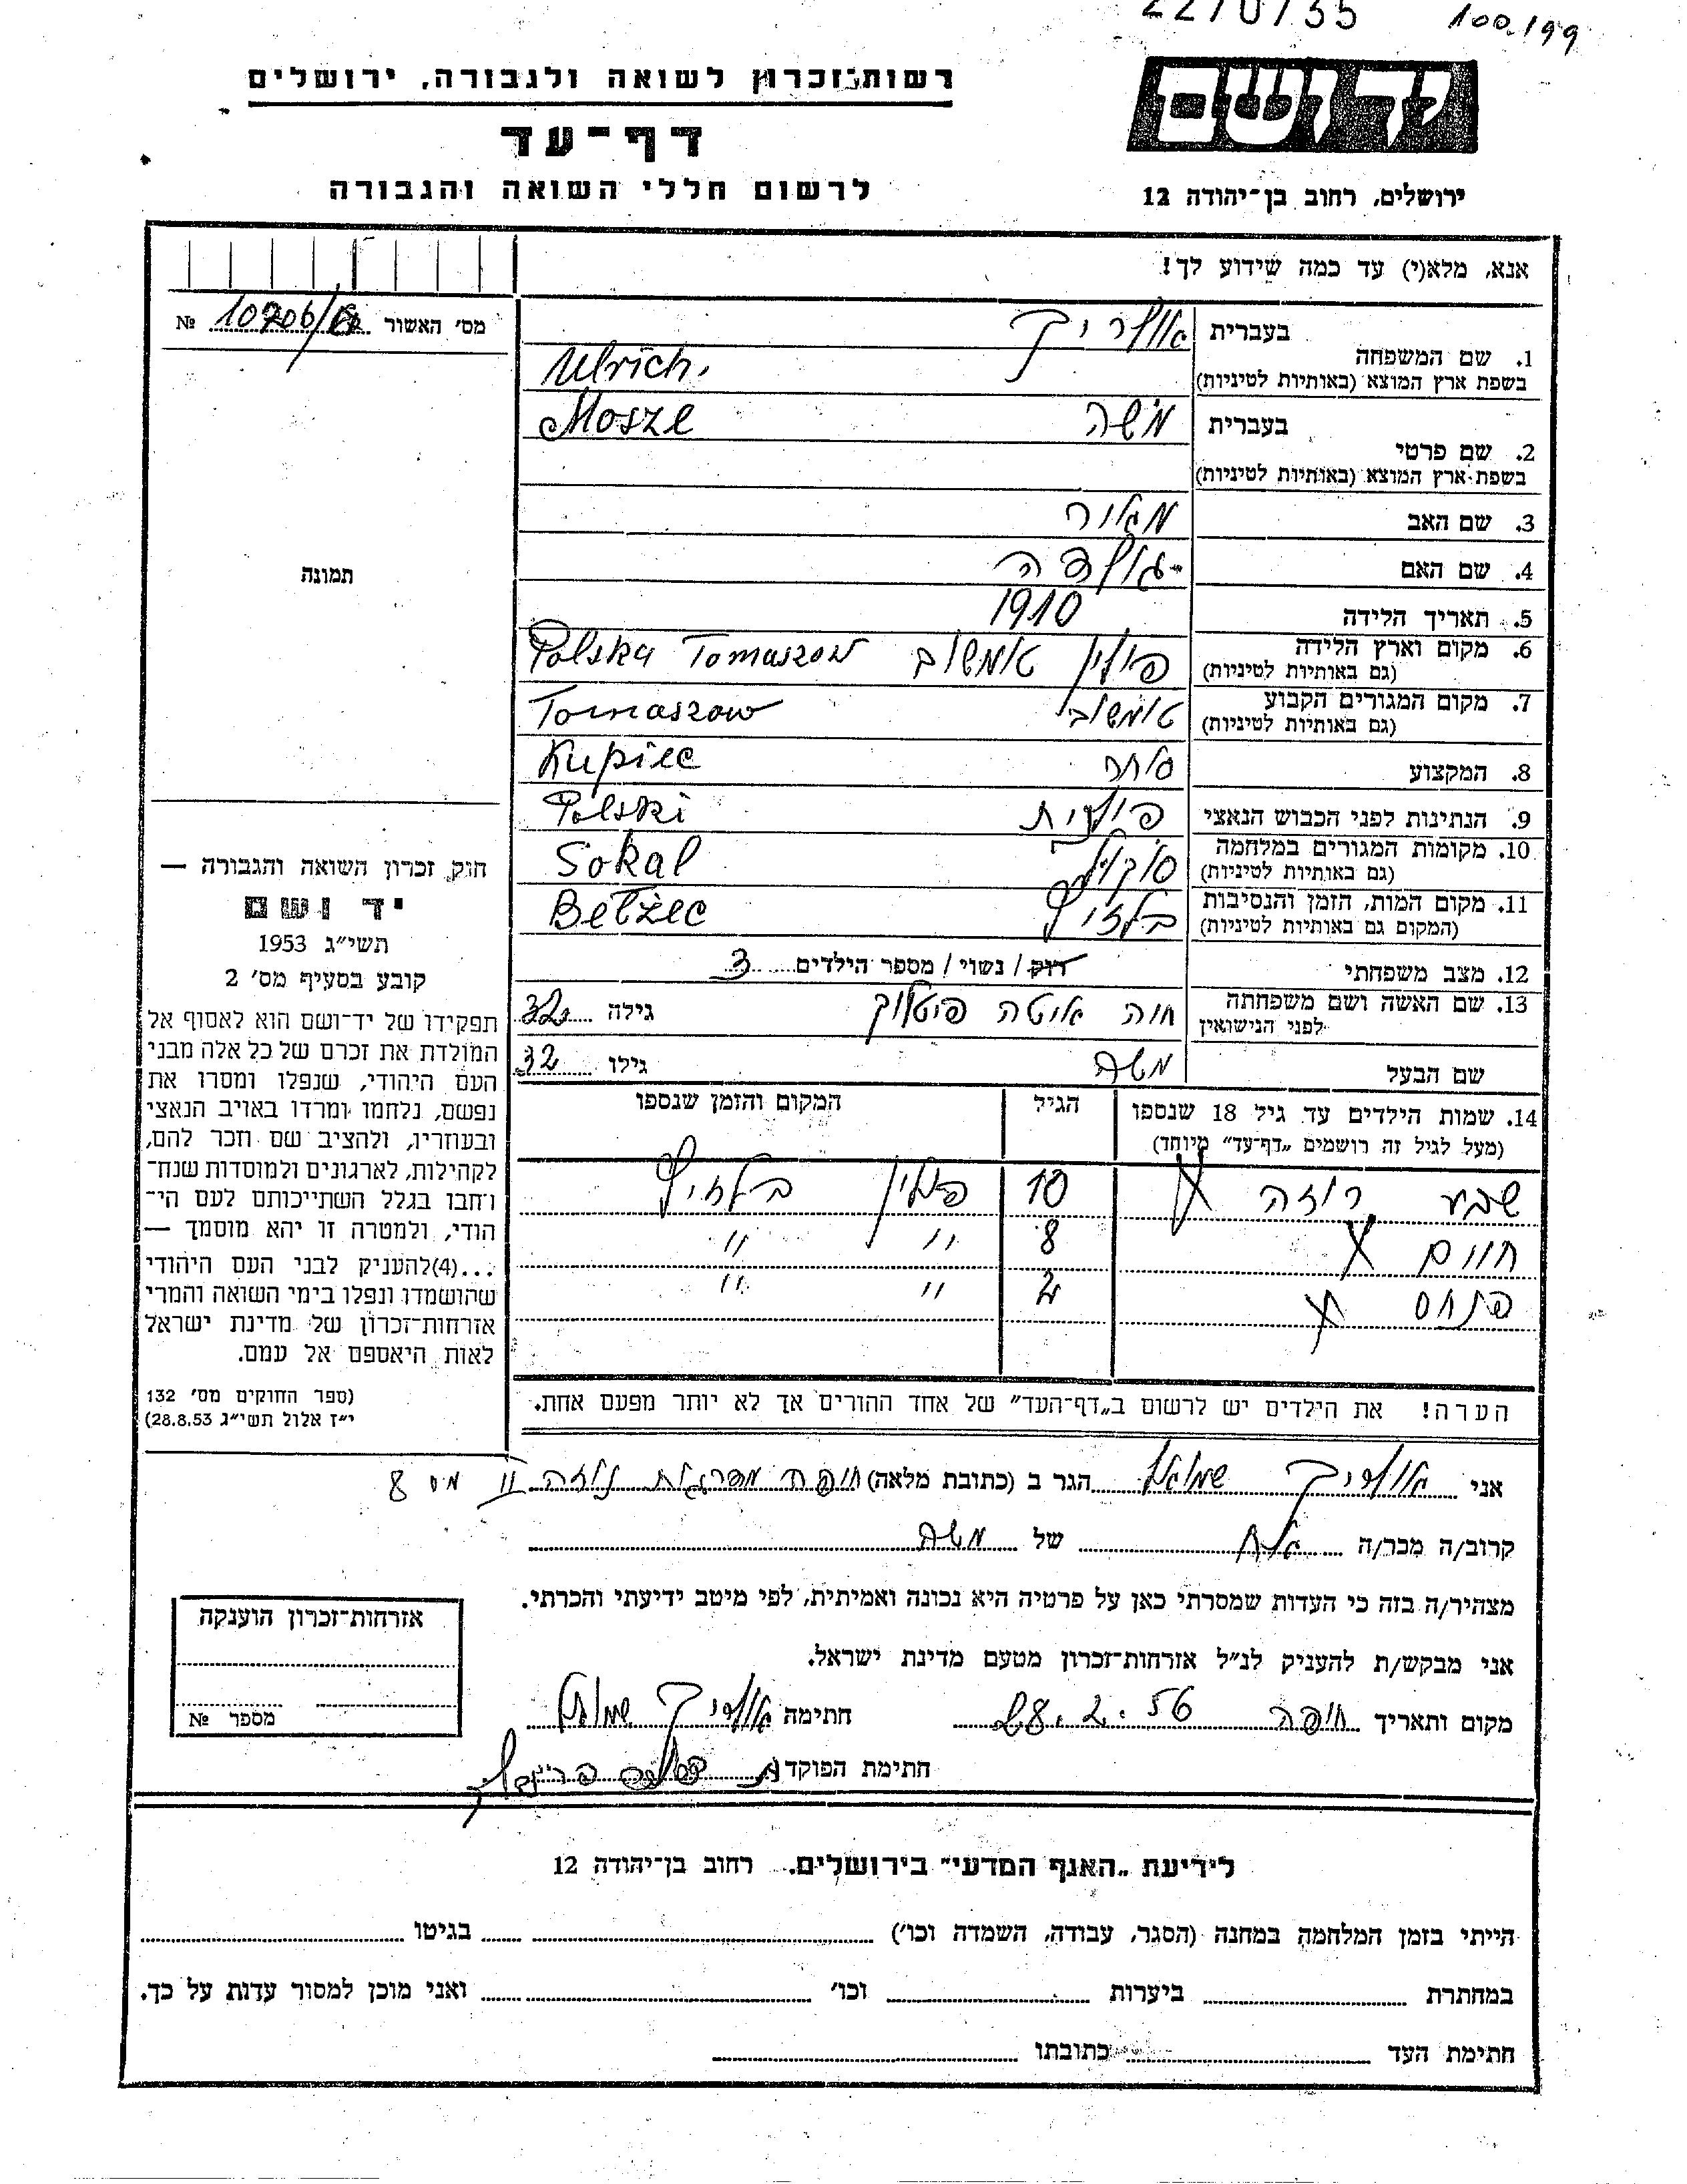 100.199
רשות זכרון לשואה ולגבורה, ירושלים
דף-עד
לרשום חללי השואה והגבורה
יד ושם
ירושלים, רחוב בן-יהודה 12
אנא, מלא(י) עד כמה שידוע לך!
מס׳ האשור №
תמונה
1. שם המשפחה בעברית אולריך
בשפת ארץ המוצא (באותיות לטיניות) Ulrich.
2. שם פרטי בעברית משה Mosze
בשפת ארץ המוצא (באותיות לטיניות)
3. שם האב מאיר
4. שם האם גולדה
5. תאריך הלידה 1910
6. מקום וארץ הלידה (גם באותיות לטיניות) פולין טומשוב Polska Tomaszow
7. מקום המגורים הקבוע (גם באותיות לטיניות) טומשוב Tomaszow
8. המקצוע סוחר Kupiec
9. הנתינות לפני הכבוש הנאצי פולנית Polski
10. מקומות המגורים במלחמה (גם באותיות לטיניות) סוקל Sokal
11. מקום המות, הזמן והנסיבות (המקום גם באותיות לטיניות) בלזיץ Bełżec
12. מצב משפחתי רוק / נשוי / מספר הילדים 3
13. שם האשה ושם משפחתה לפני הנישואין חוה איטה גילה 32
שם הבעל משה גילו 32
14. שמות הילדים עד גיל 18 שנספו הגיל המקום והזמן שנספו
(מעל לגיל זה רושמים „דף-עד" מיוחד)
שבע רוזה 10 פולין בלזיץ
חיים 8 " "
פנחס 2 " "
הערה! את הילדים יש לרשום ב„דף-העד" של אחד ההורים אך לא יותר מפעם אחת.
חוק זכרון השואה והגבורה —
יד ושם
תשי״ג 1953
קובע בסעיף מס׳ 2
תפקידו של יד-ושם הוא לאסוף אל
המולדת את זכרם של כל אלה מבני
העם היהודי, שנפלו ומסרו את
נפשם, נלחמו ומרדו באויב הנאצי
ובעוזריו, ולהציב שם וזכר להם,
לקהילות, לארגונים ולמוסדות שנח-
רבו בגלל השתייכותם לעם הי-
הודי, ולמטרה זו יהא מוסמך —
...(4)להעניק לבני העם היהודי
שהושמדו ונפלו בימי השואה והמרי
אזרחות-זכרון של מדינת ישראל
לאות היאספם אל עמם.
(ספר החוקים מס׳ 132
י״ז אלול תשי״ג 28.8.53)
אני אולריך שמואל הגר ב (כתובת מלאה) חיפה מס 8
קרוב/ה מכר/ה אח של משה
מצהיר/ה בזה כי העדות שמסרתי כאן על פרטיה היא נכונה ואמיתית, לפי מיטב ידיעתי והכרתי.
אני מבקש/ת להעניק לנ״ל אזרחות-זכרון מטעם מדינת ישראל.
מקום ותאריך חיפה 28.2.56 חתימה אולריך שמואל
חתימת הפוקד
אזרחות-זכרון הוענקה
מספר №
לידיעת „האגף המדעי" בירושלים. רחוב בן-יהודה 12
הייתי בזמן המלחמה במחנה (הסגר, עבודה, השמדה וכו׳) בגיטו
במחתרת ביערות וכו׳ ואני מוכן למסור עדות על כך.
חתימת העד כתובתו